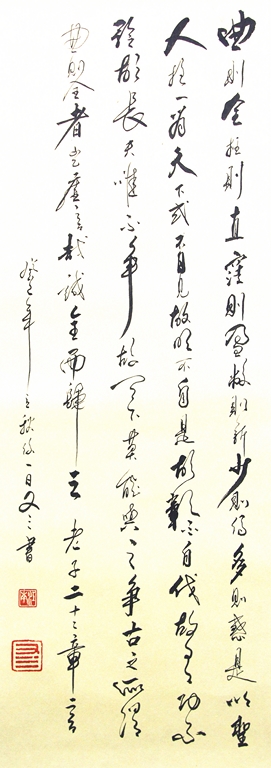 曲則全枉則直窪則盈敝則新少則得多則惑是以聖
人抱一為天下式不自見故明不自是故彰不自伐故有功不自
矜故長夫唯不爭故天下莫能與之爭古之所謂
曲則全者豈虛言哉誠全而歸之 老子二十二章言
癸巳年立秋後一日又之書